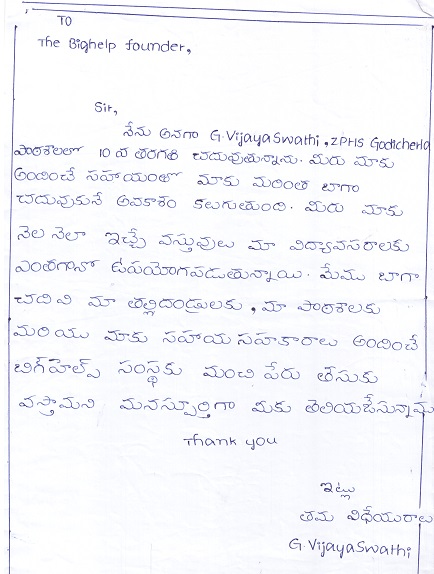 TO
The Bighelp founder,
Sir,
నేను అనగా G. Vijaya Swathi, ZPHS Godicherla
పాఠశాలలో 10 వ తరగతి చదువుతున్నాను. మీరు మాకు
అందించే సహాయంతో మాకు మరింత బాగా
చదువుకునే అవకాశం కలుగుతుంది. మీరు మాకు
నెల నెలా ఇచ్చే వస్తువులు మా విద్యావసరాలకు
ఎంతగానో ఉపయోగపడుతున్నాయి. మేము బాగా
చదివి మా తల్లిదండ్రులకు, మా పాఠశాలకు
మరియు మాకు సహాయ సహకారాలు అందించే
బిగ్‌హెల్ప్ సంస్థకు మంచి పేరు తీసుకు
వస్తామని మనస్పూర్తిగా మీకు తెలియజేస్తున్నాము
Thank you
ఇట్లు
తమ విధేయురాలు
G. Vijaya Swathi